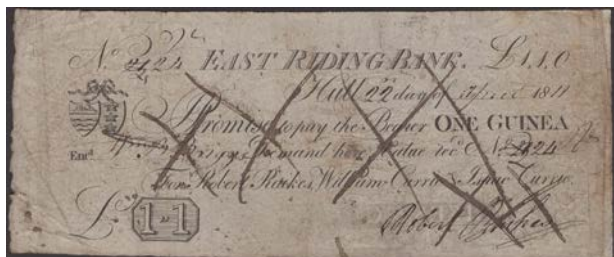 No. 2124 EAST RIDING BANK. £1.1.0
Hull 22 day of April 1811
I Promise to pay the Bearer ONE GUINEA
on Demand here Value recd. No. 2124
Entd. For Robert Raikes, William Currie & Isaac Currie.
£ 1"1
Robert Raikes